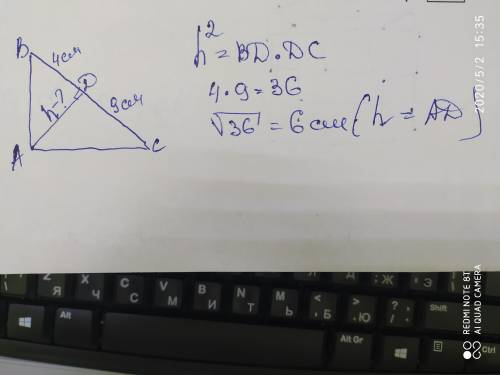 B
4см
D
h-?
9см
A
C
h² = BD · DC
4 · 9 = 36
√36 = 6 см (h = AD)
2020/5/2 15:35
REDMINE NOTE 8T
AI QUAD CAMERA
Alt
Z
Я
X
Ч
C
С
V
М
B
И
N
Т
M
Ь
<
,
Б
>
.
Ю
?
/
Shift
Alt Gr
Ctrl
Ж
Э